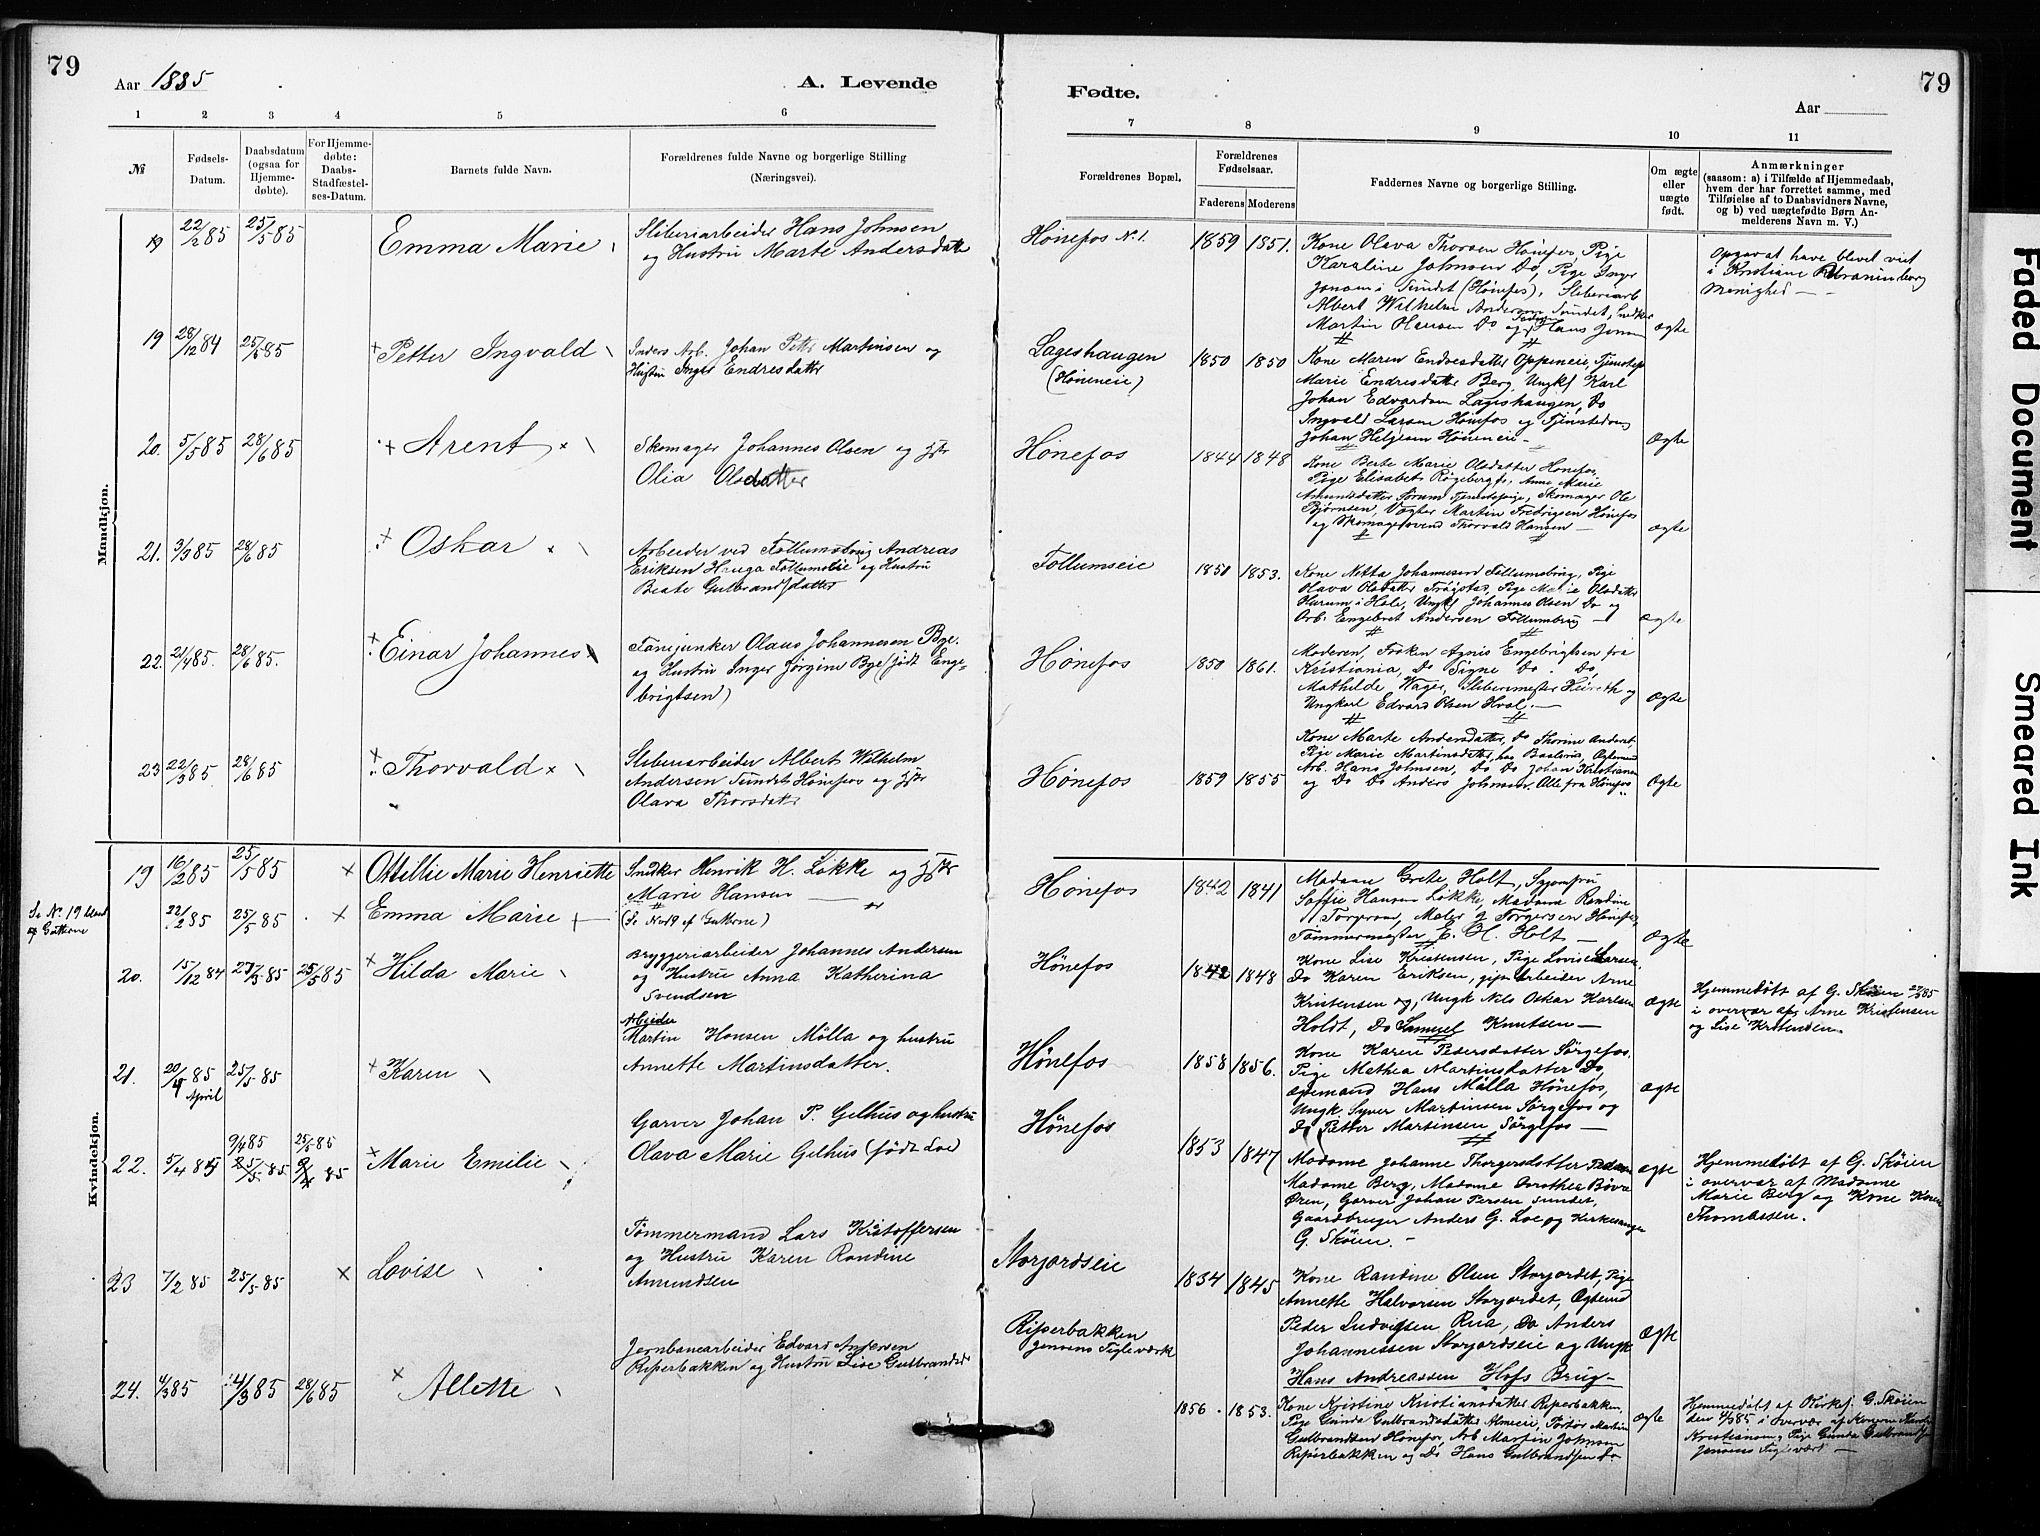 79
Aar 1885
A. Levende
1 2 3 4 5 6
№
Fødsels-
Datum.
Daabsdatum
(ogsaa for
Hjemme-
døbte).
For Hjemme-
døbte:
Daabs-
Stadfæstel-
ses-Datum.
Barnets fulde Navn.
Forældrenes fulde Navne og borgerlige Stilling
(Næringsvei).
Mandkjøn.
19 22/2 85 25/5 85 Emma Marie
Sliberiarbeider Hans Johnsen
og Hustru Marte Andersdatter
19 28/12 84 25/5 85 Petter Ingvald
Johan Martinsen og
Hustru Inger Endresdatter
20. 5/5 85 28/6 85 Arent
Skomager Johannes Olsen og
Olia Olsdatter
21. 3/3 85 28/6 85 Oskar
Arbeider ved Follumsbrug Andreas
Eriksen Hauga Follumeie og Hustru
Beate Gulbrandsdatter
22. 21/4 85. 28/6 85. Einar Johannes
Fanejunker Olaus Johannesen Bye.
og Hustru Inger Jørgine Bye (født Enge-
brigtsen)
23 22/3 85 28/6 85 Thorvald
Sliberiarbeider Albert Wilhelm
Andersen Sundet Hønefos og
Olava Thorsdatter
Kvindekjøn.
19 16/2 85 25/5 85 Ottillie Marie Henriette
Snedker Henrik H. Løkke og
Marie Hansen
Se No 19 blandt
Gutterne
22/2 85 25/5 85 Emma Marie
(Se No 19 af Gutterne)
20. 15/12 84 25/5 85 Hilda Marie
Bryggeriarbeider Johannes Andersen
og Hustru Anna Katherina
Svendsen
21. 20/4 85 25/5 85 Karen
April
Arbeider
Martin Hansen Mølla og hustru
Annette Martinsdatter.
22. 5/4 85 9/4 85 25/5 85 Marie Emilie
Garver Johan P. Gelhus og hustru
Olava Marie Gelhus (født Loe)
23 7/2 85 25/5 85 Lovise
Tømmermand Lars Kristoffersen
og Hustru Karen Randine
Amundsen
24. 4/3 85 4/3 85 28/6 85 Allette
Jernbanearbeider Edvard Andersen
Riperbakken og Hustru Lise Gulbrandsd
79
Fødte.
Aar
7 8 9 10 11
Forældrenes Bopæl.
Forældrenes
Fødselsaar.
Faderens Moderens
Faddernes Navne og borgerlige Stilling.
Om ægte
eller
uægte
født.
Anmærkninger
(saasom: a) i Tilfælde af Hjemmedaab,
hvem der har forrettet samme, med
Tilføielse af to Daabsvidners Navne,
og b) ved uægtefødte Børn An-
melderens Navn m. V.)
Hønefos No 1. 1859 1851.
Kone Olava Thorsen Hønefos, Pige
Karaline Johnsen Do, Pige Inger
Jonsen i Sundet (Hønefos), Sliberiarb
Albert Wilhelm Andersen Sundet, Snedker
Martin Hansen Do og Hans Jensen ægte
Opgav at have blevet viet
i Kristiania Uranienborg
Menighed
Lageshaugen
(Høneneie) 1850 1850
Kone Maren Endresdatter Oppeneie, Tjenestep
Marie Endresdatter Berg, Ungk Karl
Johan Edvardsen Lageshaugen, Do
Ingvald Larsen Hønefos og Tjenestedreng
Johan Helgesen Høneneie ægte
Hønefos 1844 1848
Kone Berte Marie Olsdatter Hønefos,
Pige Elisabet Røgeberg, Anne Marie
Amundsdatter Sørum Tjenestepige, Skomager Ole
Bjørnsen, Vægter Martin Fredrigsen Hønefos
og Skomagersvend Thorvald Hansen ægte
Follumseie 1850 1853.
Kone Netta Johannesen Follumsbrug, Pige
Olava Olsdatter Trøgstad, Pige Marie Olsdatter
Harum i Hole, Ungk Johannes Olsen Do og
Arb. Engebret Andersen Follumbrug ægte
Hønefos 1850 1861.
Moderen, Frøken Agnis Engebrigtsen fra
Kristiania, Do Signe Do. Do,
Mathilde Wager, Slibermester og
Ungkarl Edvard Olsen Hval. ægte
Hønefos 1859 1855
Kone Marte Andersdatter, Do Thorine Anderst,
Pige Marie Martinsdatter,
Arb. Hans Johnsen, Do Do Johan Kristiansen
og Do Do Anders Johnsen. Alle fra Hønefos ægte
Hønefos 1842 1841
Madam Grete Holt, Syjomfru
Saffie Hansen Løkke, Madame Randine
Torgersen, Maler Torgersen Hønefos,
Tømmermester E. H. Holt ægte
Hønefos 1842 1848
Kone Lise Kristensen, Pige Lovise Larsen,
Do Karen Eriksen, gift Arbeider Arne
Kristensen og Ungk Nils Oskar Karlsen
Holdt, Do Samuel Knutsen ægte
Hjemmedøbt af G. Skøien
i overvær af Arne Kristensen
og Lise Kristensen.
Hønefos 1858 1856.
Kone Karen Pedersdatter Sørgefos.
Pige Mathea Martinsdatter Do,
Hans Mølla Hønefos,
Ungk. Syver Martinsen Sørgefos og
Do Petter Martinsen, Sørgefos ægte
Hønefos 1853 1847
Madame Johanne Thorgersdatter
Madame Berg, Madame Dorothea Bøvre
Øren, Garver Johan Persen Sundet,
Gaardbruger Anders G. Loe og Kirkesanger
G. Skøien. ægte
Hjemmedøbt af G. Skøien
i overvær af Madame
Marie Berg og Kone Karen
Thomassen.
Storjordseie 1834 1845
Kone Randine Olsen Storjordet, Pige
Annette Halvorsen Storjordet, Ægtemd
Peder Ludvigsen Rua, Do Anders
Johannessen Storjordseie og Ungk
Hans Andreassen Hofs Brug ægte
Riperbakken
Jensens Tegleværk 1856. 1853.
Kone Kristine Kristiansdatter Riperbakken,
Pige Gunda Gulbrandsdatter Almeie, Martin
Gulbrandsen Hønefos, Arb Martin Johnsen
Riperbakken og Do Hans Gulbrandsen Do ægte
Hjemmedøbt af Kirks. G. Skøien
den 4/3 85 i Overvær af Konerne
Kristiansen, Pige Gunda Gulbrandsen
Jensens Teglværk
Faded Document
Smeared Ink